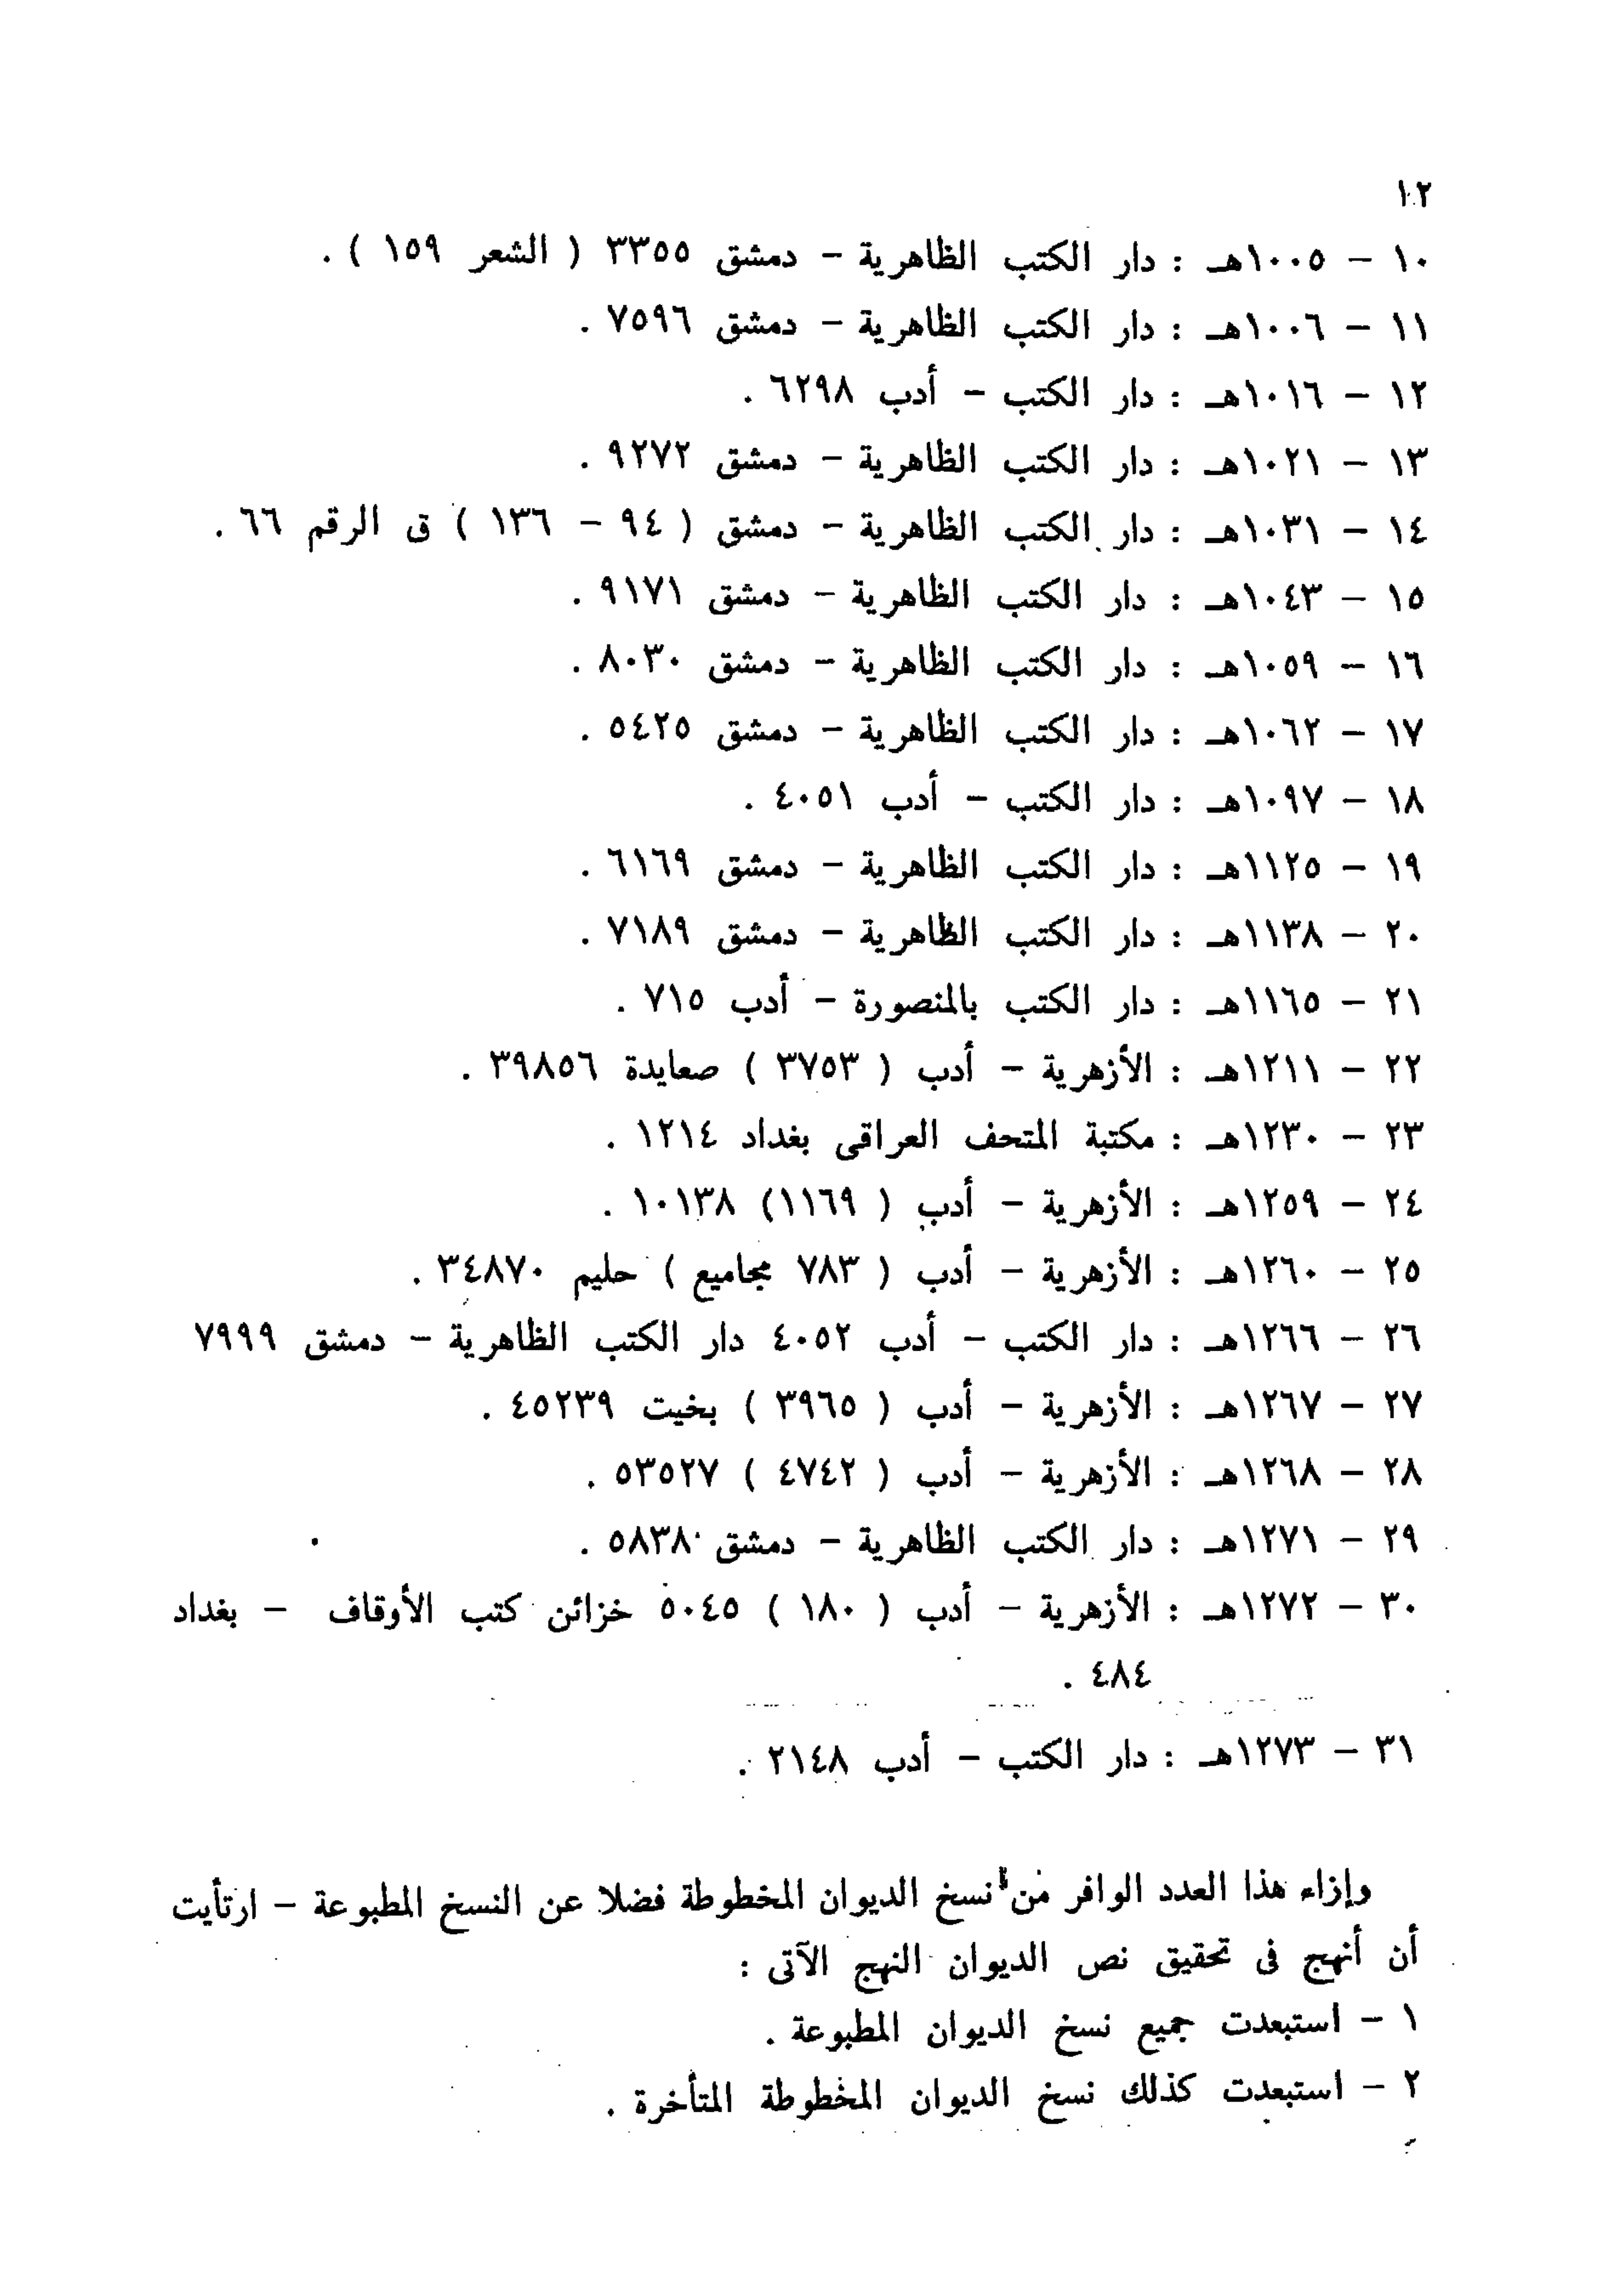 ١٢
١٠ – ١٠٠٥هـ : دار الكتب الظاهرية – دمشق ٣٣٥٥ ( الشعر ١٥٩ ) .
١١ – ١٠٠٦هـ : دار الكتب الظاهرية – دمشق ٧٥٩٦ .
١٢ – ١٠١٦هـ : دار الكتب – أدب ٦٢٩٨ .
١٣ – ١٠٢١هـ : دار الكتب الظاهرية – دمشق ٩٢٧٢ .
١٤ – ١٠٣١هـ : دار الكتب الظاهرية – دمشق ( ٩٤ – ١٣٦ ) ق الرقم ٦٦ .
١٥ – ١٠٤٣هـ : دار الكتب الظاهرية – دمشق ٩١٧١ .
١٦ – ١٠٥٩هـ : دار الكتب الظاهرية – دمشق ٨٠٣٠ .
١٧ – ١٠٦٢هـ : دار الكتب الظاهرية – دمشق ٥٤٢٥ .
١٨ – ١٠٩٧هـ : دار الكتب – أدب ٤٠٥١ .
١٩ – ١١٢٥هـ : دار الكتب الظاهرية – دمشق ٦١٦٩ .
٢٠ – ١١٣٨هـ : دار الكتب الظاهرية – دمشق ٧١٨٩ .
٢١ – ١١٦٥هـ : دار الكتب بالمنصورة – أدب ٧١٥ .
٢٢ – ١٢١١هـ : الأزهرية – أدب ( ٣٧٥٣ ) صعايدة ٣٩٨٥٦ .
٢٣ – ١٢٣٠هـ : مكتبة المتحف العراقى بغداد ١٢١٤ .
٢٤ – ١٢٥٩هـ : الأزهرية – أدب ( ١١٦٩) ١٠١٣٨ .
٢٥ – ١٢٦٠هـ : الأزهرية – أدب ( ٧٨٣ مجاميع ) حليم ٣٤٨٧٠ .
٢٦ – ١٢٦٦هـ : دار الكتب – أدب ٤٠٥٢ دار الكتب الظاهرية – دمشق ٧٩٩٩
٢٧ – ١٢٦٧هـ : الأزهرية – أدب ( ٣٩٦٥ ) بخيت ٤٥٢٣٩ .
٢٨ – ١٢٦٨هـ : الأزهرية – أدب ( ٤٧٤٢ ) ٥٣٥٢٧ .
٢٩ – ١٢٧١هـ : دار الكتب الظاهرية – دمشق ٥٨٣٨ .
٣٠ – ١٢٧٢هـ : الأزهرية – أدب ( ١٨٠ ) ٥٠٤٥ خزائن كتب الأوقاف – بغداد
٤٨٤ .
٣١ – ١٢٧٣هـ : دار الكتب – أدب ٢١٤٨ .
وإزاء هذا العدد الوافر من نسخ الديوان المخطوطة فضلا عن النسخ المطبوعة – ارتأيت
أن أنهج فى تحقيق نص الديوان النهج الآتى :
١ – استبعدت جميع نسخ الديوان المطبوعة .
٢ – استبعدت كذلك نسخ الديوان المخطوطة المتأخرة .